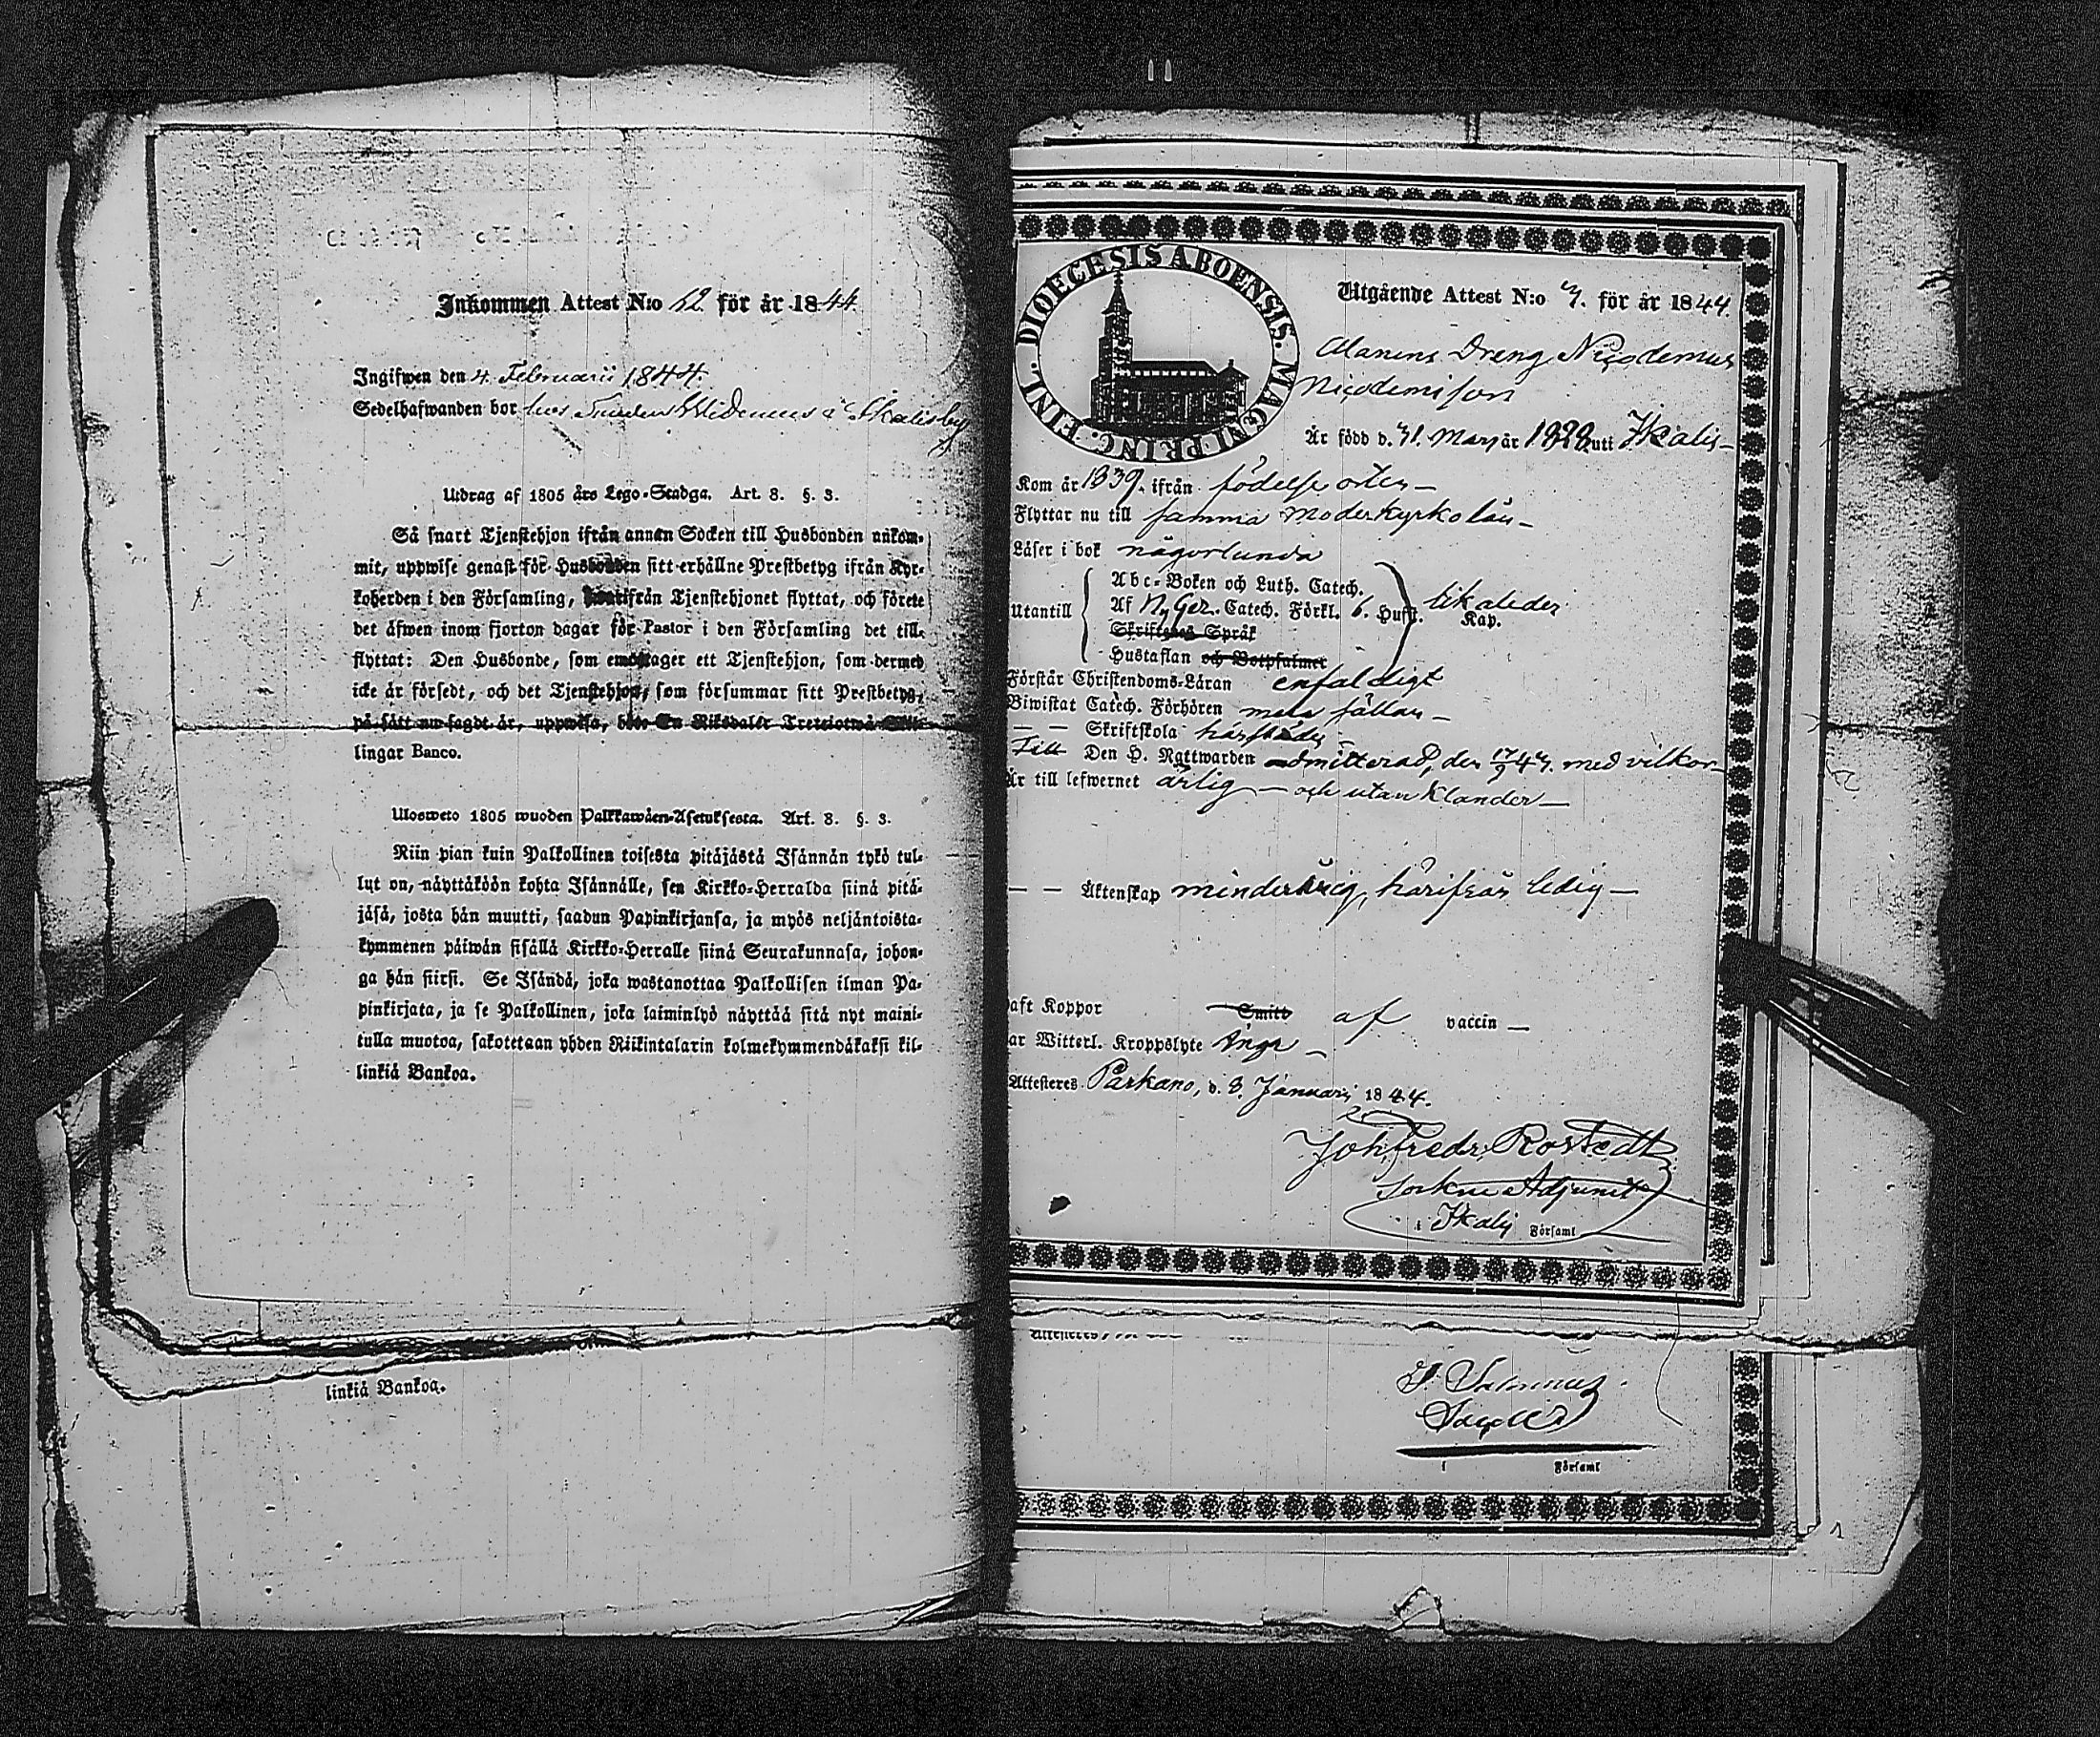 Inkommen Attest N:o 12 för år 1844.
Ingifwen den 4. Februarii 1844.
Sedelhafwanden bor hos i Ikalisby
Utdrag af 1805 års Lego-Stadga. Art. 8. §. 3.
Så snart Tjenstehjon ifrån annan Socken till Husbonden ankom-
mit, uppwise genast för Husbonden sitt erhållne Prestbetyg ifrån Kyr-
koherden i den Församling, hwarifrån Tjenstehjonet flyttat, och förete
det äfwen inom fjorton dagar för Pastor i den Församling det till-
flyttat: Den Husbonde, som emottager ett Tjenstehjon, som dermed
icke är försedt, och det Tjenstehjon, som försummar sitt Prestbetyg,
på sätt nu sagdt är, uppwisa, böte En Riksdaler Trettiotwå Skil-
lingar Banco.
Ulosweto 1805 wuoden Palkkawäen-Asetuksesta. Art. 8. §. 3.
Niin pian kuin Palkollinen toisesta pitäjästä Isännän tykö tul-
lut on, näyttäköön kohta Isännälle, sen Kirkko-Herralda siinä pitä-
jäsä, josta hän muutti, saadun Papinkirjansa, ja myös neljäntoista-
kymmenen päiwän sisällä Kirkko-Herralle siinä Seurakunnasa, johon-
ga hän siirsi. Se Isändä, joka wastanottaa Palkollisen ilman Pa-
pinkirjata, ja se Palkollinen, joka laiminlyö näyttää sitä nyt maini-
tulla muotoa, sakotetaan yhden Riikintalarin kolmekymmendäkaksi kil-
linkiä Bankoa.
linkiä Bankoa.
DIOECESIS ABOENSIS. MAGNI PRINC. FINL.
Utgående Attest N:o 7. för år 1844.
Dreng Nicodemus
Nicodemisson
Är född d. 31. Mars år 1828 uti Ikalis
Kom år 1839. ifrån födelse orten
Flyttar nu till samma moderkyrko län
Läser i bok någorlunda
Utantill
Abc-Boken och Luth. Catech.
Af N. Ger. Catech. Förkl. 6. Hufst. likaledes
Kap.
Skriftenes Språk
Hustaflan och Botpsalmer
Förstår Christendoms-Läran enfaldigt
Biwistat Catech. Förhören
— — Skriftskola härstädes
Till Den H. Nattwarden admitterad, den 17/9 43. med vilkor
Är till lefwernet ärlig — och utan klander —
— — Äktenskap minderårig, härifrån ledig —
Haft Koppor Smitt af vaccin —
Har Witterl. Kroppslyte Inga
Attesteres. Parkano, d. 8. Januari 1844.
Joh. Fredr. Rostedt
Socken Adjunct
i Ikalis Församl
i Församl